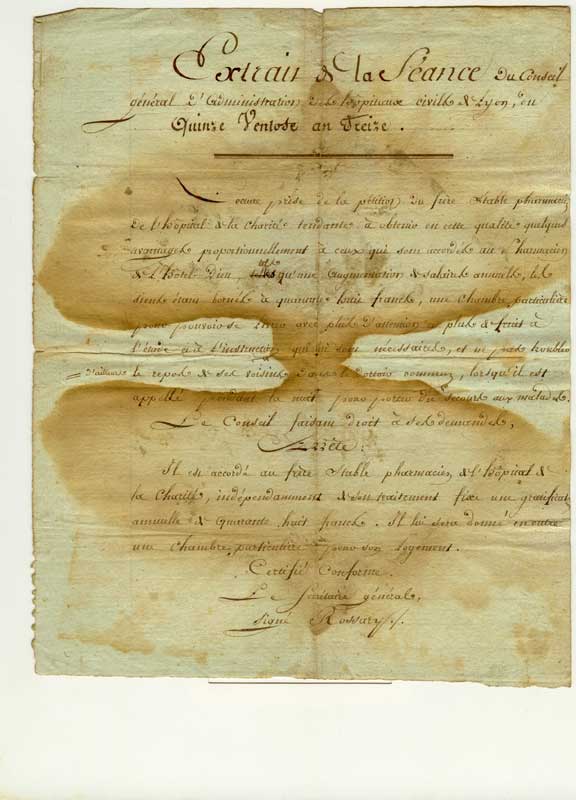 Extrait de la Séance du Conseil
général d'administration des hôpitaux civils de Lyon, du
Quinze Ventose an Treize.
Lecture prise de la pétition du frère Stable pharmacien
de l'hôpital de la Charité tendante à obtenir en cette qualité quelques
avantages proportionnellement à ceux qui sont accordés au Pharmacien
de l'hôtel-Dieu, qu'une augmentation de salaire annuelle, les
siens étant bornés à quarante huit francs, une chambre particulière
pour pouvoir se livrer avec plus d'attention et plus de fruit à
l'étude et à l'instruction qui lui sont nécessaires, et ne pas troubler
= d'ailleurs le repos de ses voisins dans le dortoir commun, lorsqu'il est
appellé pendant la nuit pour porter du secours aux malades.
Le Conseil faisant droit à ses demandes,
Arrête:
Il est accordé au frère Stable pharmacien de l'hôpital de
la Charité, indépendamment de son traitement fixe une gratificat.
annuelle de quarante huit francs. Il lui sera donné en outre
une chambre particulière pour son logement.
Certifié Conforme.
Le Secrétaire général,
signé Rossary.